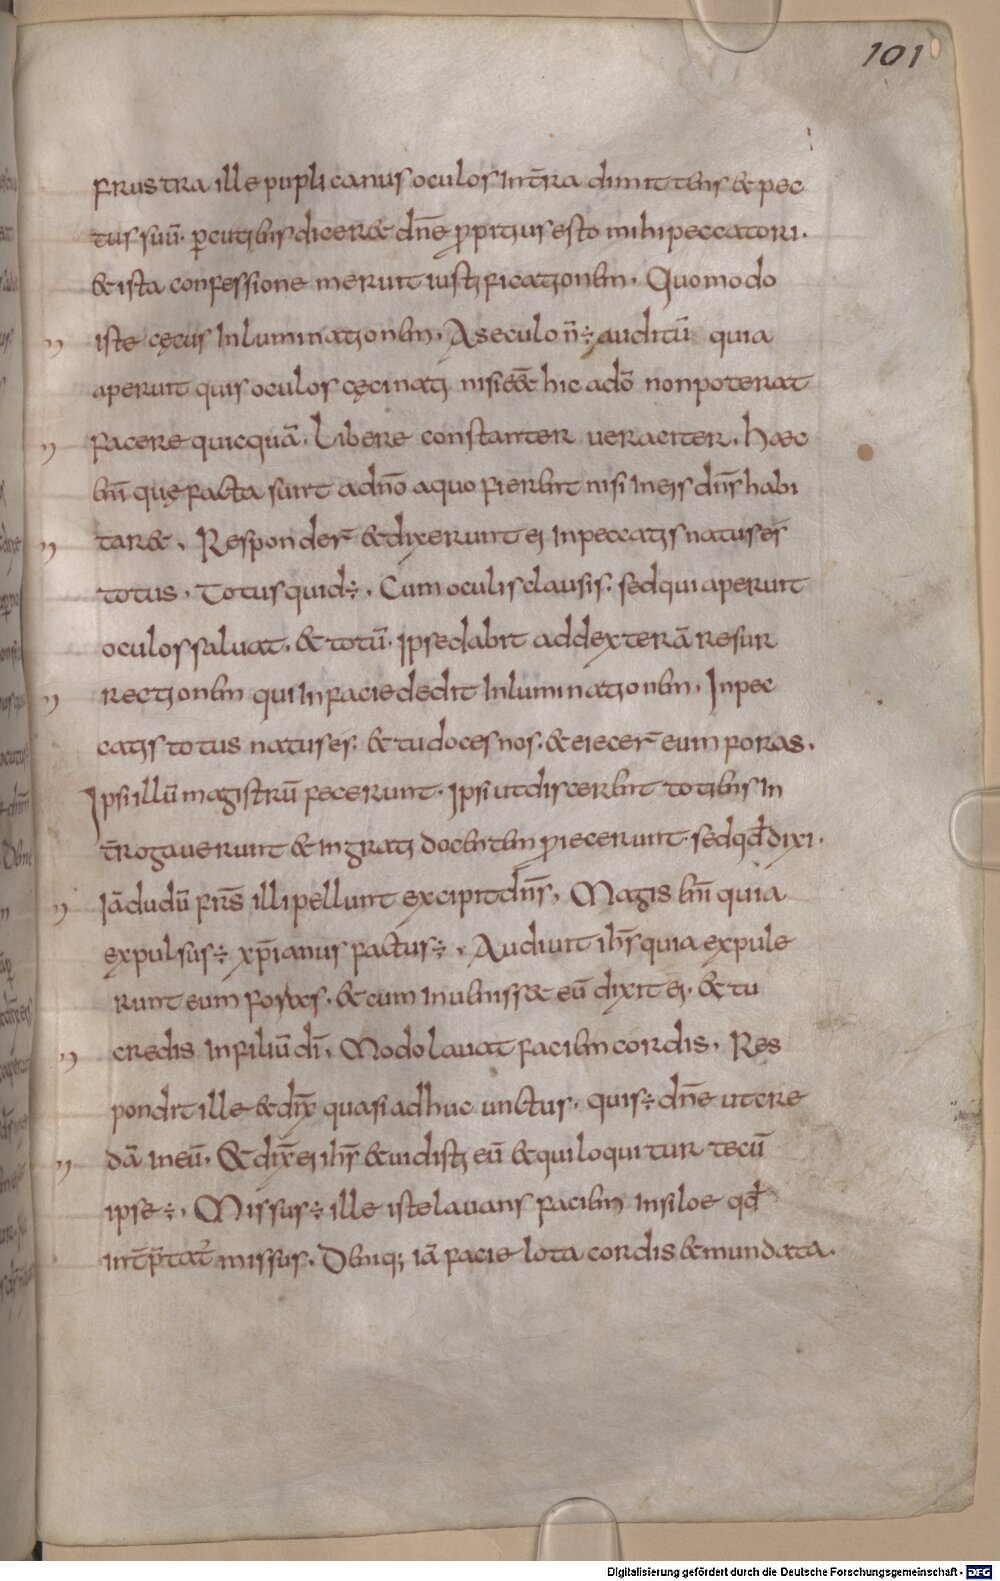 101
frustra ille puplicanus oculos int̄ra dimittens & pec
tus suū. ꝑcutiens dicer& dn̄e ꝓpitius esto mihi peccatori.
& ista confessione meruit iustificationem. Quomodo
iste cęcus Inluminationem. A seculo n̄ ÷ auditū quia
aperuit quis oculos cęci nati nisi ēē& hic a dō non poterat
facere quicquā. Libere constanter veraciter. Haec
enī quę facta sunt a dn̄o a quo fierent nisi in eis dn̄s habi
tar&. Responder̄ & dixerunt ei In peccatis natus es
totus. Totus quid ÷. Cum oculis clausis. sed qui aperuit
oculos saluat. & totū. Ipse dabit ad dexterā resur
rectionem qui In facie dedit Inluminationem. In pec
catis totus natus es. & tu doces nos. & eiecer̄ eum foras.
Ipsi illū magistrū fecerunt. Ipsi ut discerent totiens In
t̄rogaverunt & ingrati docentem ꝓiecerunt. sed qđ dixi.
Iā dudū fr̄s illi pellunt excipit dn̄s, Magis enī quia
expulsus ÷ xp̄ianus factus ÷. Audiuit ih̄s quia expule
runt eum foras. & cum inueniss& eū dixit ei. & tu
credis in filiū dī, Modo lauat faciem cordis. Res
pondit ille & dix̄ quasi adhuc unctus. quis ÷ dn̄e ut cre
dā in eū. & dix̄ ei ih̄s & uidisti eū & qui loquitur tecū
ipse ÷. Missus ÷ ille iste lauans faciem in siloe qđ
int̄p̄tat̄ missus. Deniq; iā facie lota cordis & mundata.
Digitalisierung gefördert durch die Deutsche Forschungsgemeinschaft - DFG